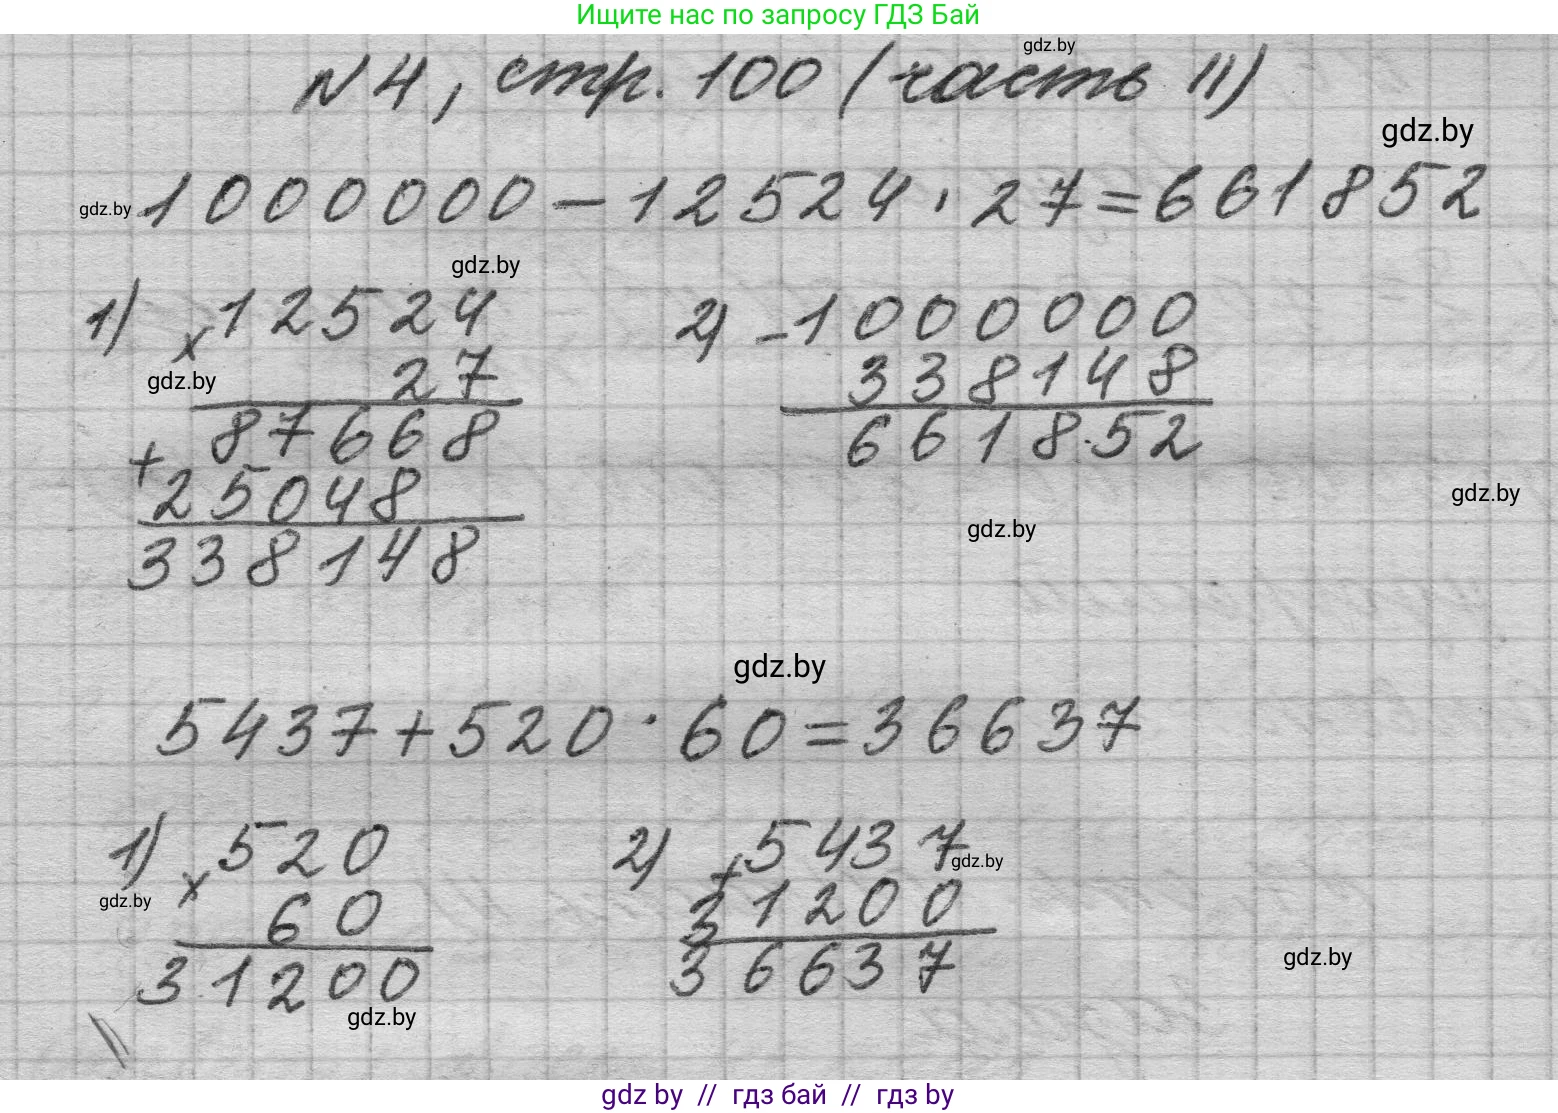 Ищите нас по запросу ГДЗ Бай
gdz.by
N4, стр. 100 (часть II)
gdz.by
gdz.by 1000000-12524·27=661852
gdz.by
1) ×12524 2) -1000000
27 338148
gdz.by
87668 661852
+
25048
gdz.by
gdz.by
338148
gdz.by
5437+520·60=36637
1) ×520 2) +5437
gdz.by
gdz.by
60 31200
31200 36637
gdz.by
gdz.by
gdz by // гдз бай // гдз by